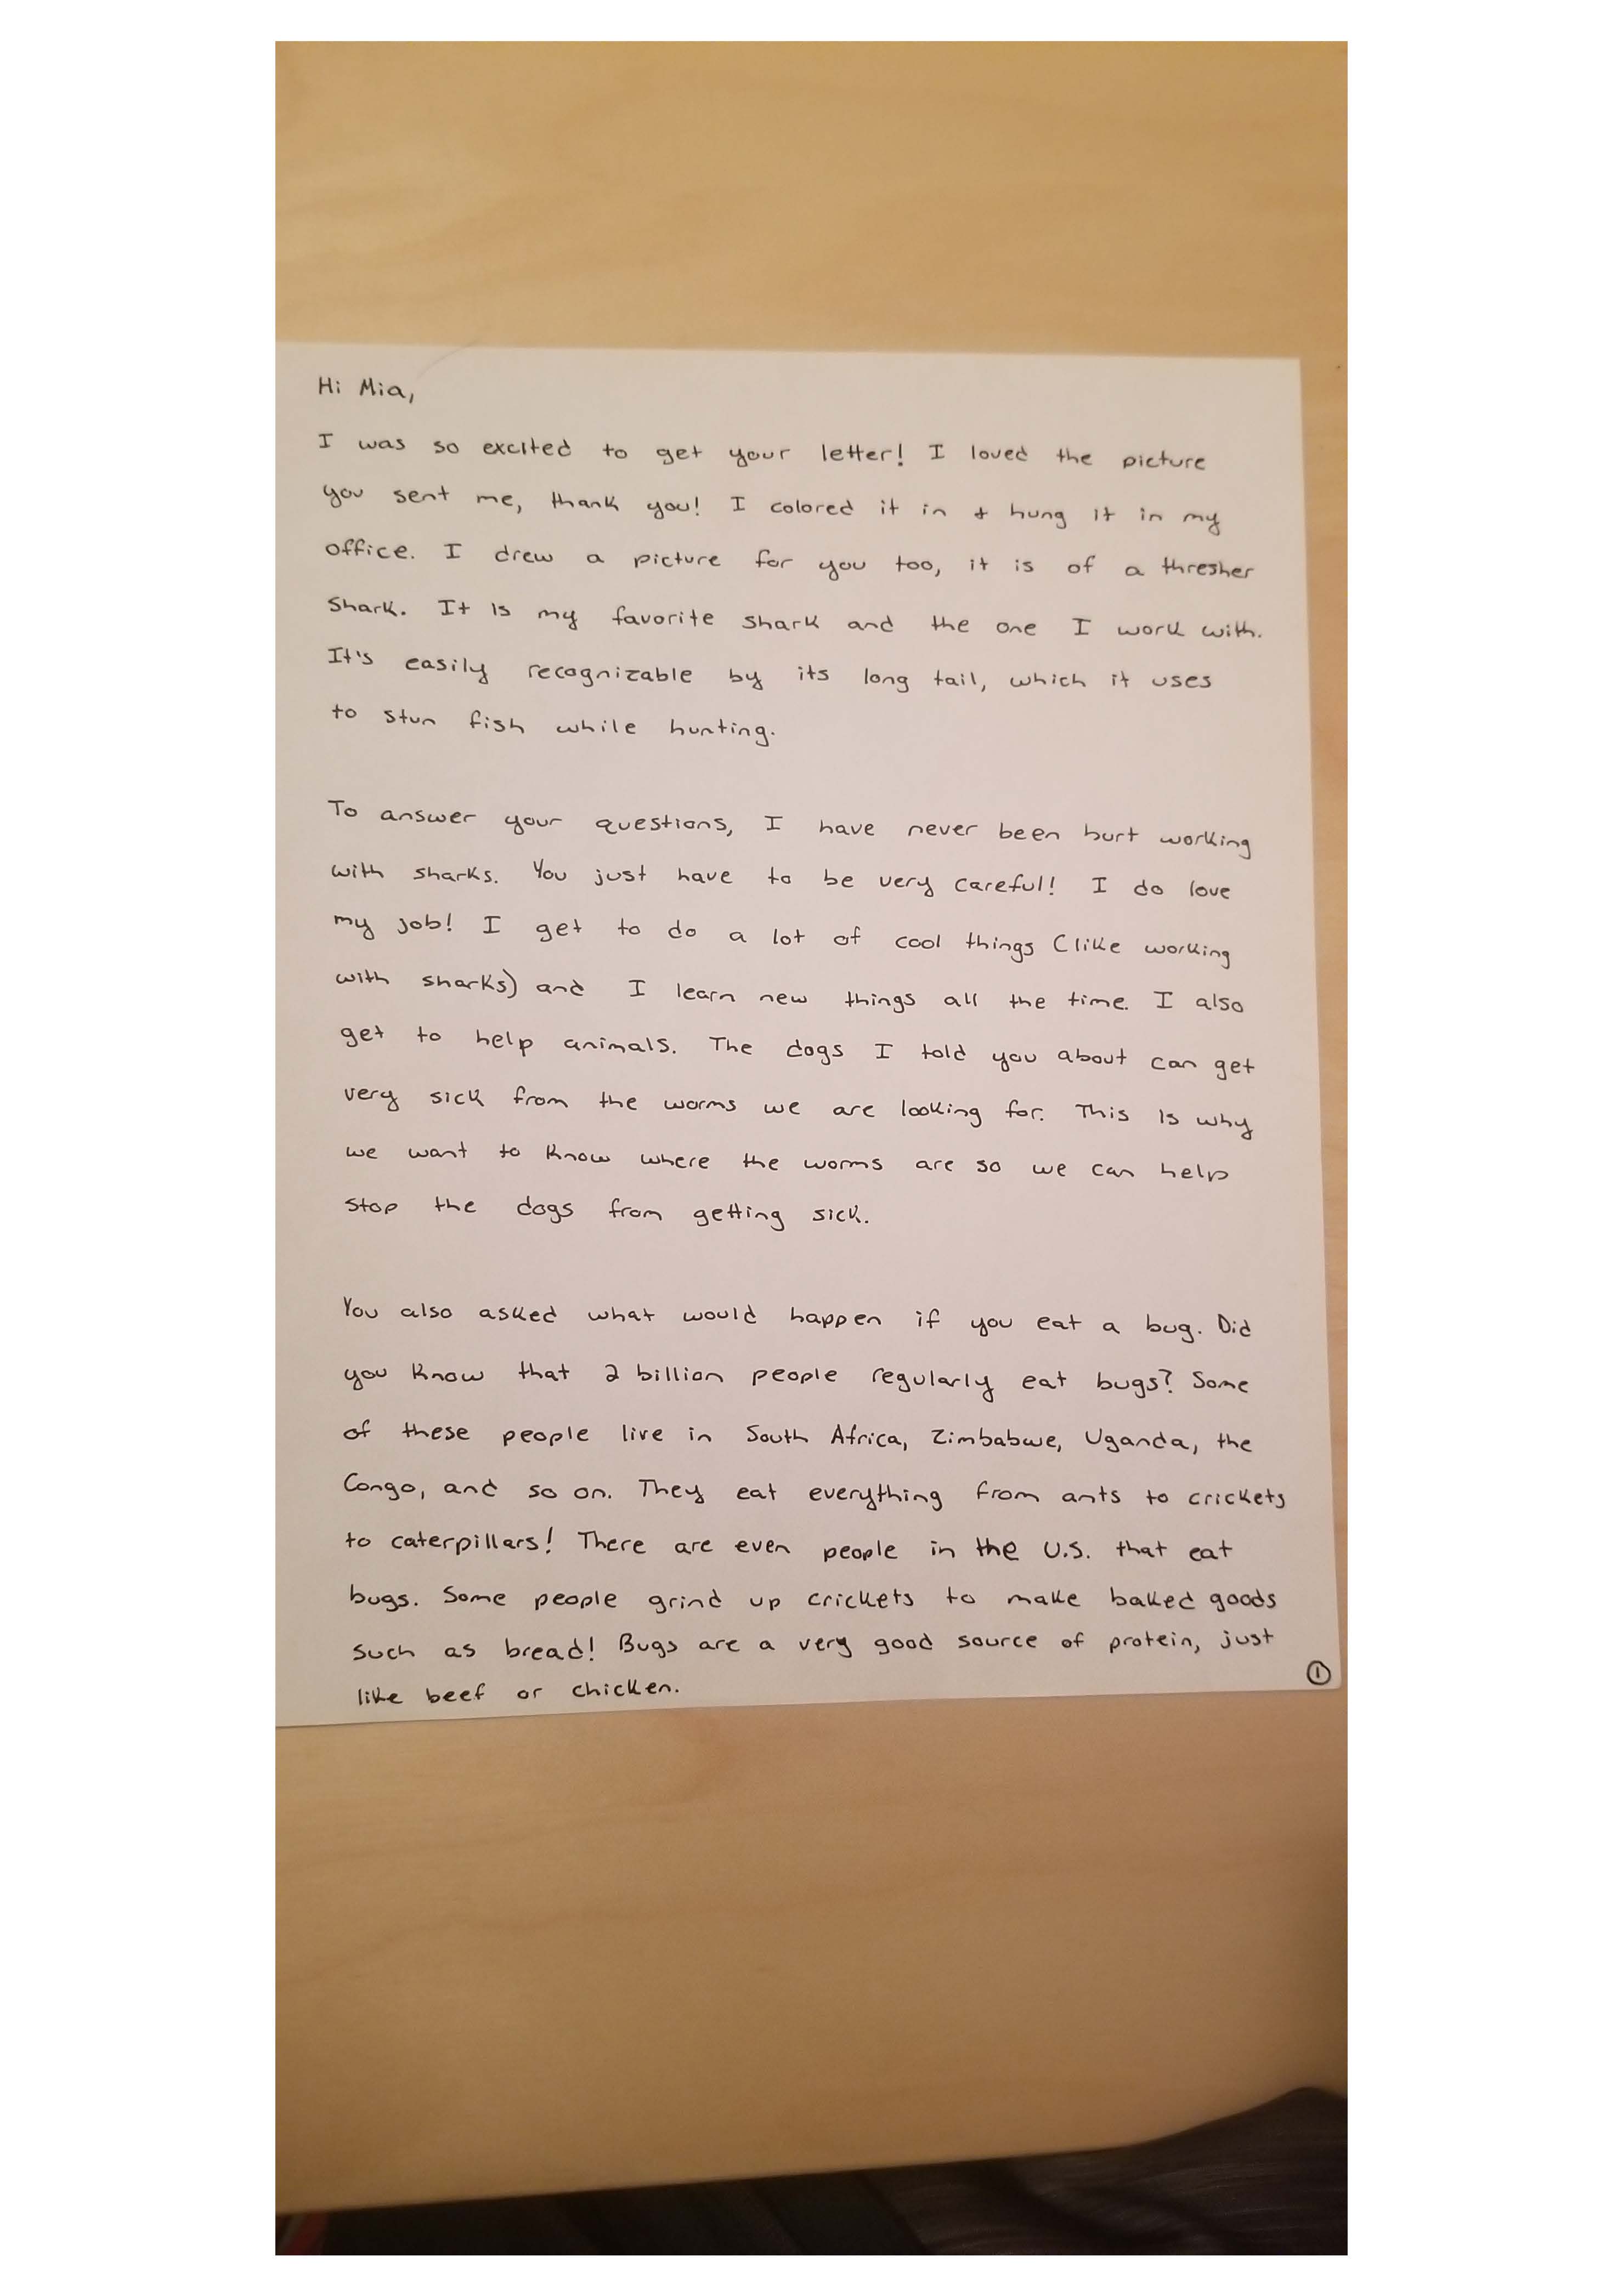 Hi Mia,
I was so excited to get your letter! I loved the picture
you sent me, thank you! I colored it in & hung it in my
office. I drew a picture for you too, it is of a thresher
shark. It is my favorite shark and the one I work with.
It's easily recognizable by its long tail, which it uses
to stun fish while hunting.
To answer your questions, I have never been hurt working
with sharks. You just have to be very careful! I do love
my job! I get to do a lot of cool things (like working
with sharks) and I learn new things all the time. I also
get to help animals. The dogs I told you about can get
very sick from the worms we are looking for. This is why
we want to know where the worms are so we can help
stop the dogs from getting sick.
You also asked what would happen if you eat a bug. Did
you know that 2 billion people regularly eat bugs? Some
of these people live in South Africa, Zimbabwe, Uganda, the
Congo, and so on. They eat everything from ants to crickets
to caterpillars! There are even people in the U.S. that eat
bugs. Some people grind up crickets to make baked goods
such as bread! Bugs are a very good source of protein, just
like beef or chicken.
1